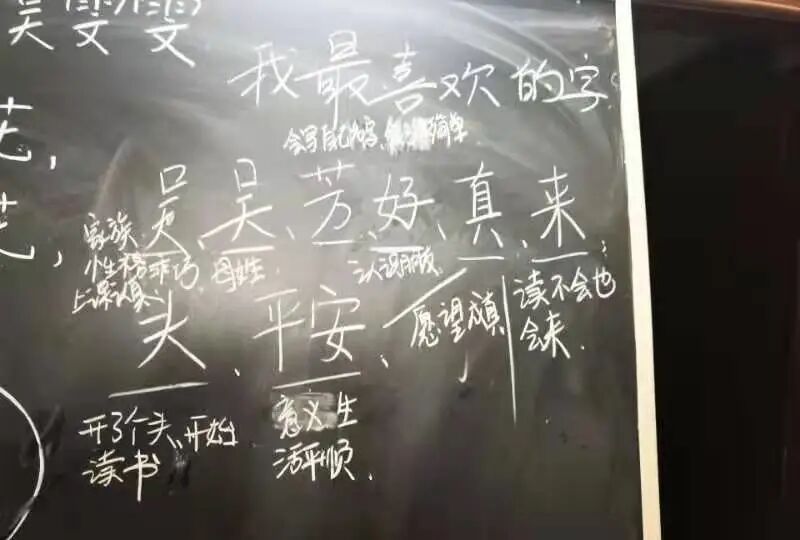 吴雯雯
我最喜欢的字
会写自己名字, 简单
艺,
吴、吴、芳、好、真、来;
家族 小性格乖巧, 母姓. 认识朋友,
上课认真
头、平安、愿望成真 读不会也
会来.
开了个头、开始 意义生
读书 活平顺.